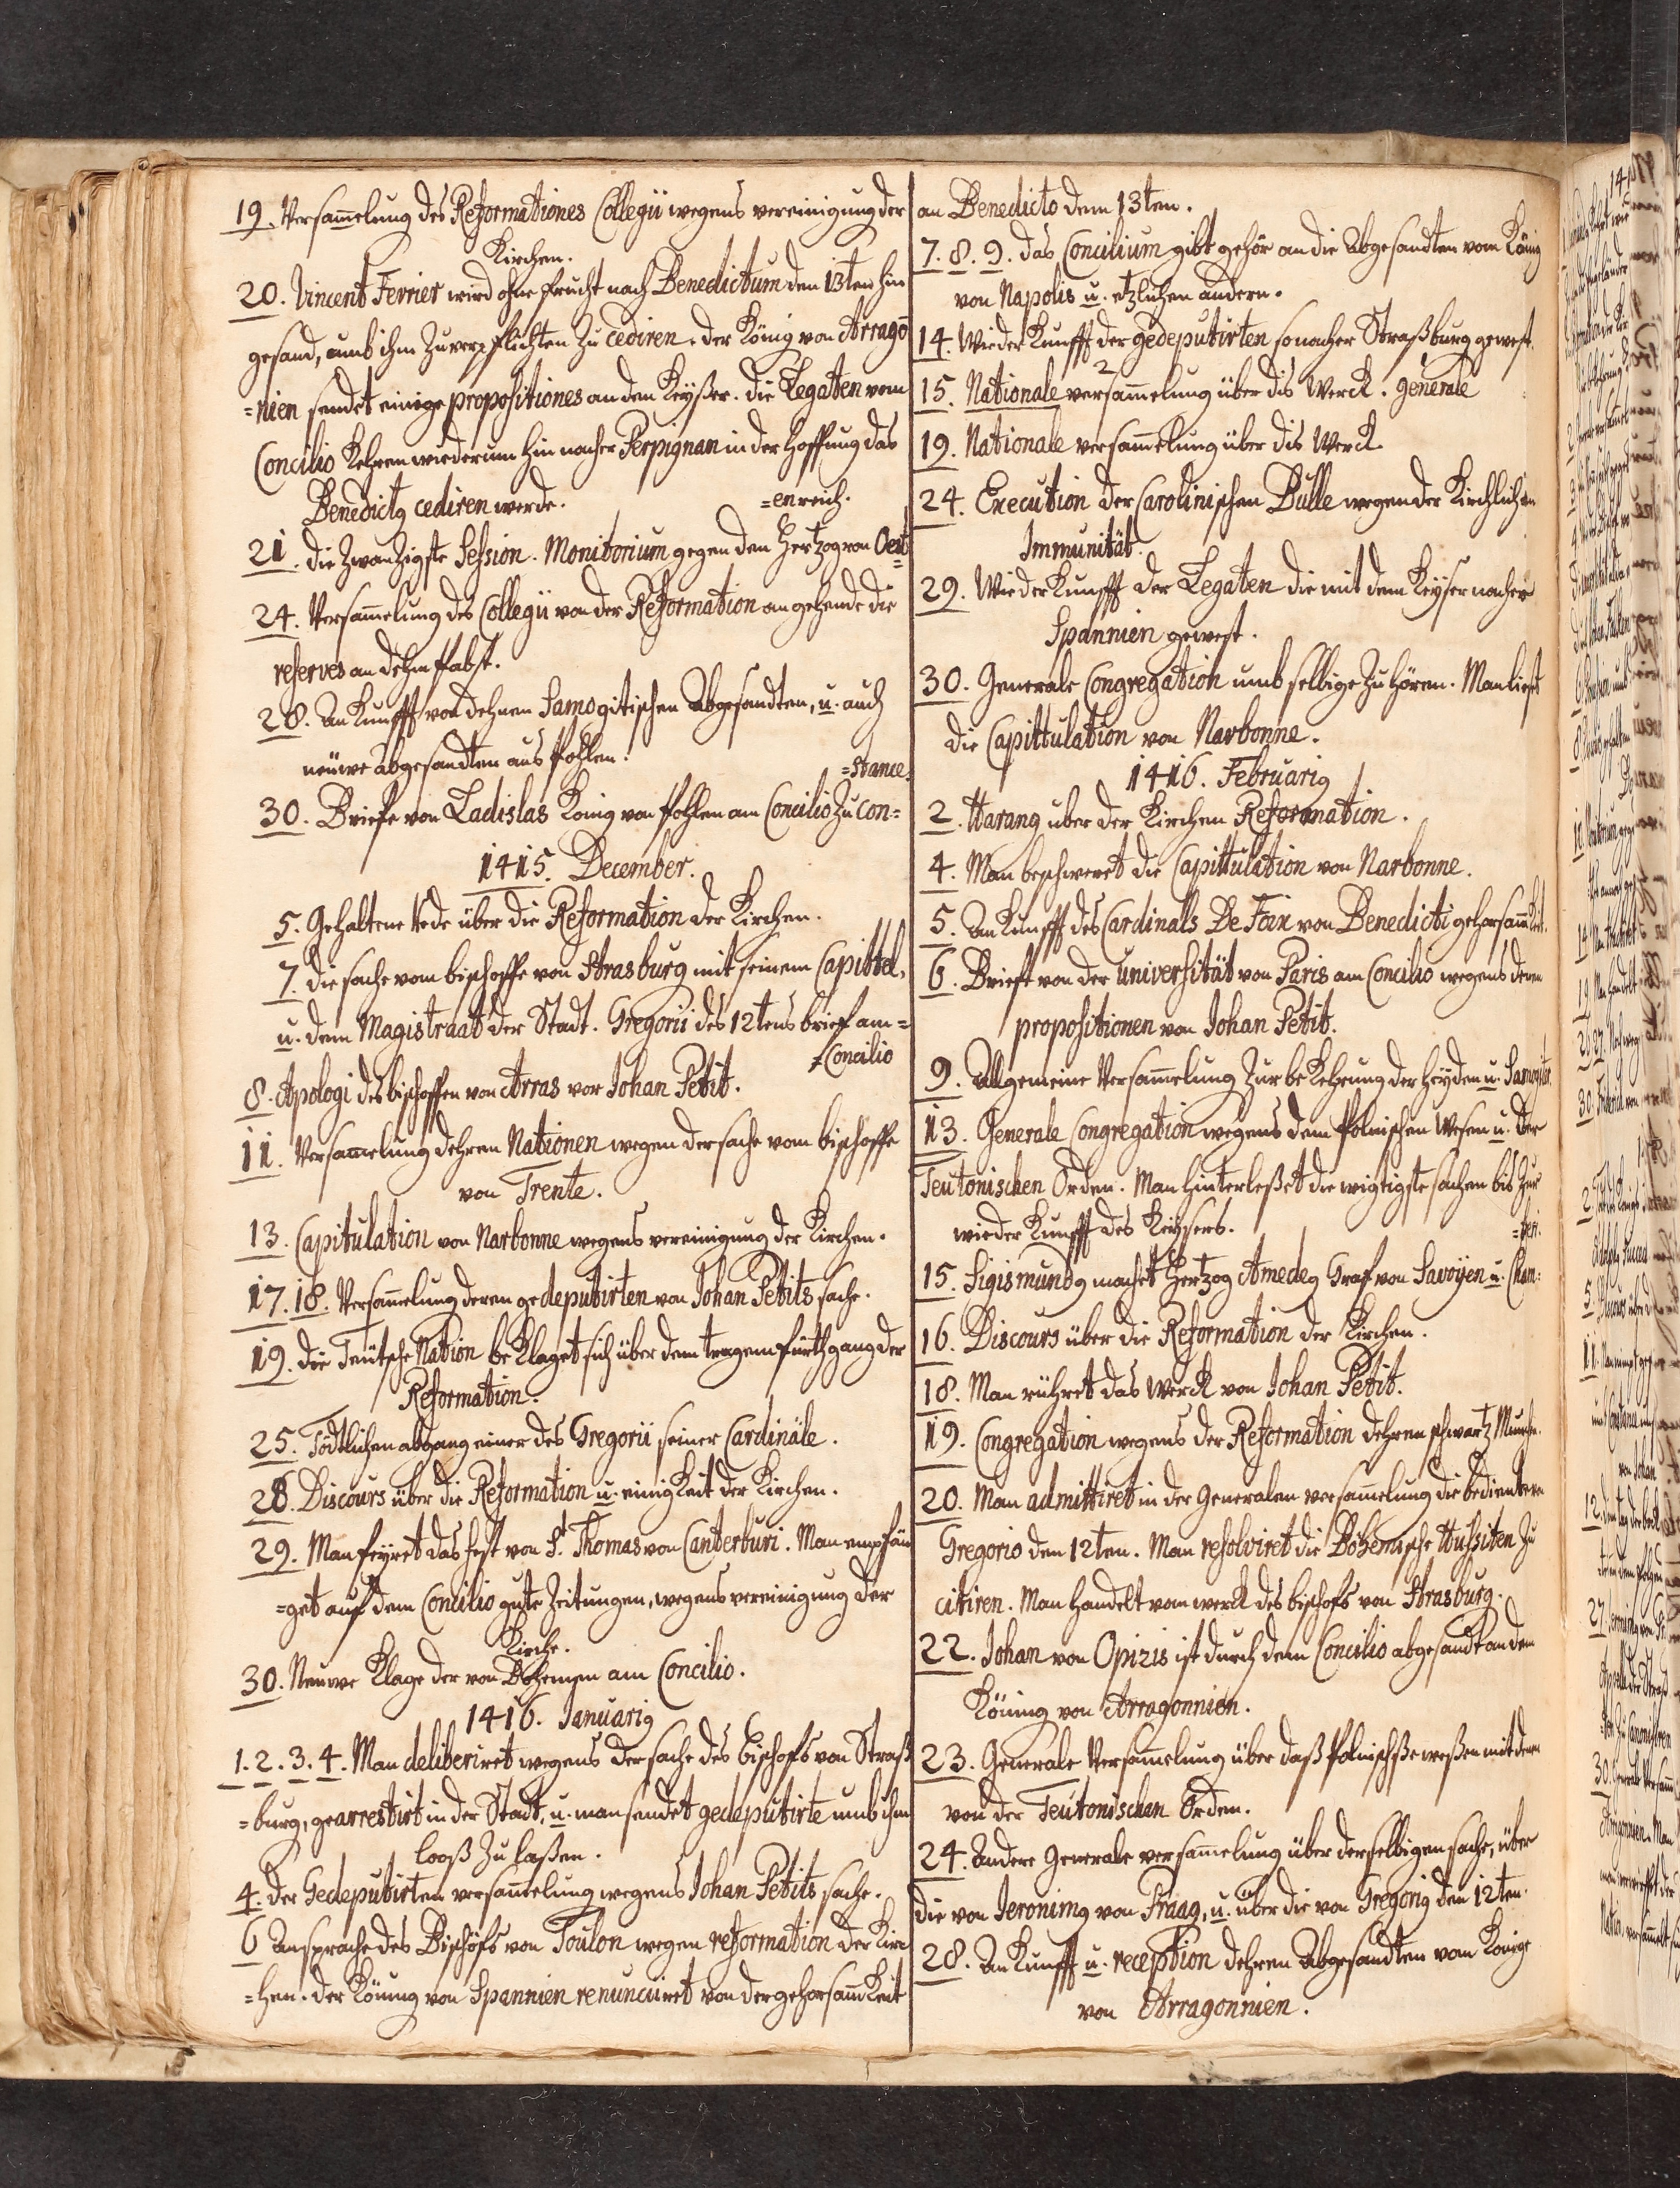 19. Versam̄elung des Reformationes Collegii wegens vereinigung der
Kirchen.
20. Vincent Ferrier wird ohne frucht nach Benedictum den 13ten hin
gesand, umb ihm zu verpflichten zu cediren. der König von Arrago
=nien sendet einige propositiones an den Keyßer. die Legaten vom
Concilio Kehren wiederum hin nacher Perpignan in der hoffnung das
Benedictq cediren werde.
=enreich.
21. die zwanzigste Session. Monitorium gegen den Hertzog von Oest=
24. Versam̄elung des Collegii von der Reformation angehende die
reserves an dehm Pabst.
28. An Kunfft von dehnen Samogitischen Abgesandten, u. auch
neüwe abgesandten aus Pohlen.
=stance.
30. Briefe von Ladislas König von Pohlen am Concilio zu Con=
1415. December.
5. Gehaltene rede über die Reformation der Kirchen.
7. die sache vom bischoffe von Strasburg mit seinem Capittel,
u. dem Magistraat der Stadt. Gregorii des 12tens brief am=
=Concilio
8. Apologi des bischoffen von Arras vor Johan Petit.
11. Versam̄elung dehren Nationen wegen der sache vom bischoffe
von Trente.
13. Capitulation von Narbonne wegens vereinigung der Kirchen.
17. 18. Versam̄elung deren gedeputirten von Johan Petits sache.
19. die Teütsche Nation beKlaget sich über dem tragem fürthgang der
Reformation.
25. Tödtlichen abgang einer des Gregorii seiner Cardinäle.
28. Discours über die Reformation u. einigKeit der Kirchen.
29. Man feyret das fest von St. Thomas von Canterburi. Man empfän
=get auf dem Concilio gute Zeitungen, wegens vereinigung der
Kirche.
30. Neuwe Klage der von Bohemen am Concilio.
1416. Januariq
1. 2. 3. 4. Man deliberiret wegens der sache des bischofs von Straß
=burg, gearrestirt in der Stadt, u. man sendet gedeputirte umb ihm
looß zu laßen.
4. der Gedeputirten versam̄elung wegens Johan Petits sache.
6 Ansprache des Bischofs von Toulon wegen reformation der Kirc
=hen. der Köning von Spannien renunciiret von der gehorsam̄Keit
an Benedicto dem 13ten.
7. 8. 9. das Concilium gibt gehör an die Abgesandten vom König
von Napolis u. etzlichen andern.
14. WiederKunfft der gedeputirten so nacher Straßburg gewest.
2
15. Nationale versam̄elung über dis WercK. generale
19. Nationale versam̄elung über dis WercK
24. Execution der Carolinischen Bulle wegen der Kirchlichen
Immunität.
29. WiederKunfft der Legaten die mit dem Keyser nacher
Spannien gewest.
30. Generale Congregation umb selbige zu hören. Man liest
die Capittulation von Narbonne.
1416. Februariq
2. Harang uber der Kirchen Reformation.
4. Man beschweret die Capittulation von Narbonne.
5. An Kunfft des Cardinals De Foix von Benedicti gehorsam̄Keit.
6. Briefe von der universität von Paris am Concilio wegens denen
propositionen von Johan Petit.
9. Allgemeine Versam̄elung zur beKehrung der Heyden u. Samogiter.
13. Generale Congregation wegens dem Polnischen Wesen u. der
Teutonischen Orden. Man hinterleßet die wigtigste sachen bis zur
wieder Kunfft des Keysers.
=beri.
15. Sigismundq machet Hertzog Amedeq Graf von Savoyen u. Cham=
16. Discours über die Reformation der Kirchen.
18. Man rühret das WercK von Johan Petit.
19. Congregation wegens der Reformation dehren schwartz Munche.
20. Man admittiret in der Generalen versam̄elung die bedientern
Gregorio dem 12ten. Man resolviret die Bohemische Hussiten zu
citiren. Man handelt vom wercK des bischofs von Strasburg.
22. Johan von Opizis ist durch dem Concilio abgesandt an dem
Köning von Arragonnien.
23. Generale Versam̄elung über daß Polnischße weßen mit denen
von der Teutonischen Orden.
24. Andere Generale versam̄elung über derselbigen sache, über
die von Jeronimq von Praag, u. über die von Gregoriq dem 12ten.
28. An Kunfft u. reception dehren Abgesandten vom Könige
von Arragonnien.